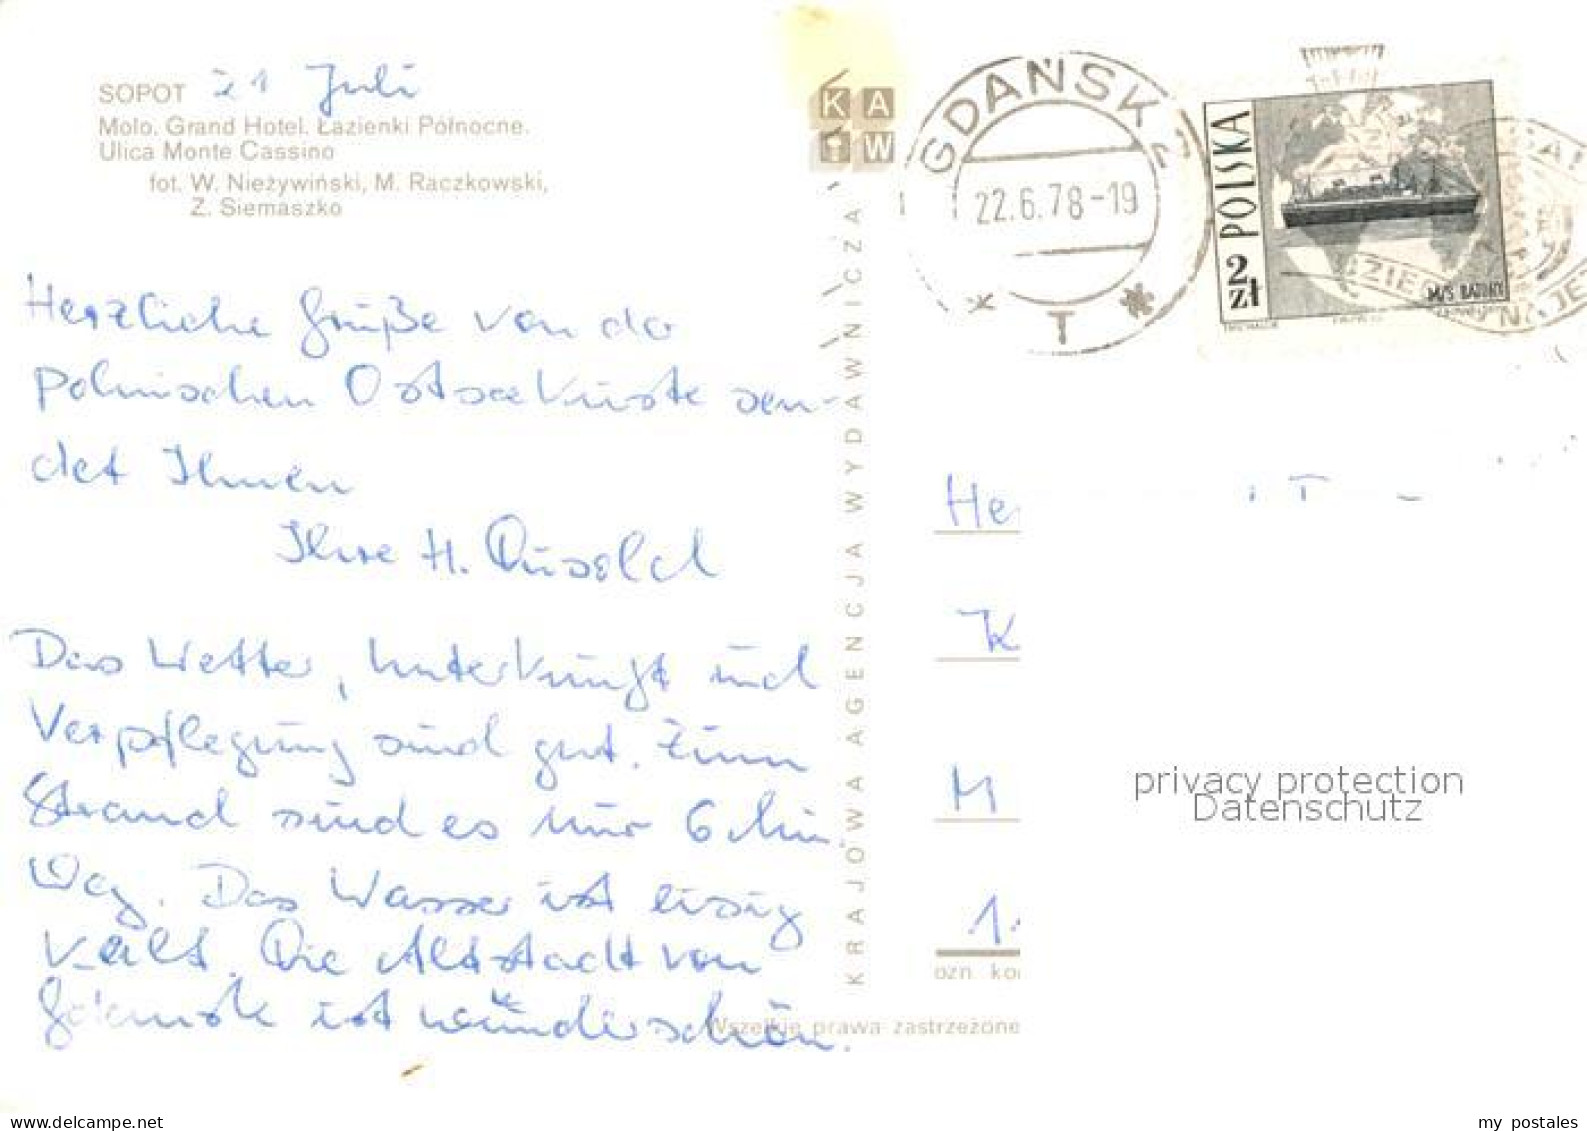 SOPOT 21 Juli
Molo. Grand Hotel. Łazienki Północne.
Ulica Monte Cassino
fot. W. Nieżywiński, M. Raczkowski,
Z. Siemaszko
Herzliche Grüße von der
polnischen Ostseeküste sen-
det Ihnen
Ihre H.
Das Wetter, Unterkunft und
Verpflegung sind gut. Zum
Strand sind es nur 6 Min.
Weg. Das Wasser ist eisig
kalt. Die Altstadt von
Gdansk ist wunderschön.
KAW
KRAJOWA AGENCJA WYDAWNICZA
GDAŃSK 2
22.6.78-19
T
POLSKA
2 zł
M/S BATORY
He
K
M
1.
ozn. ko
Wszelkie prawa zastrzeżone
privacy protection
Datenschutz
www.delcampe.net
my_postales